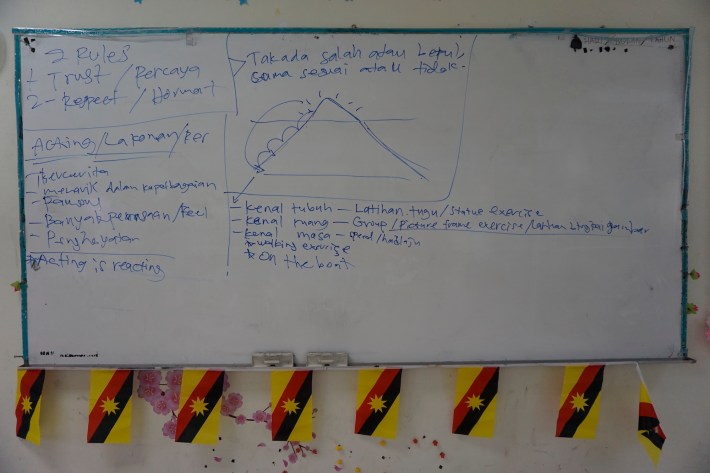 2 Rules
1. Trust / Percaya
2 - Respect / Hormat
Takada salah atau betul,
sama sesuai atau tidak.
Acting/Lakonan/Per
Bercerita
- menarik dalam kepelbagaian
- Fantasy
- Banyak perasaan/Feel
- Penghayatan
* Acting is reacting
- kenal tubuh - Latihan tugu/statue exercise
- kenal ruang - Group/Picture frame exercise/Latihan bingkai gambar
- kenal masa - speed/hadlaju
* walking exercise
* On the boat